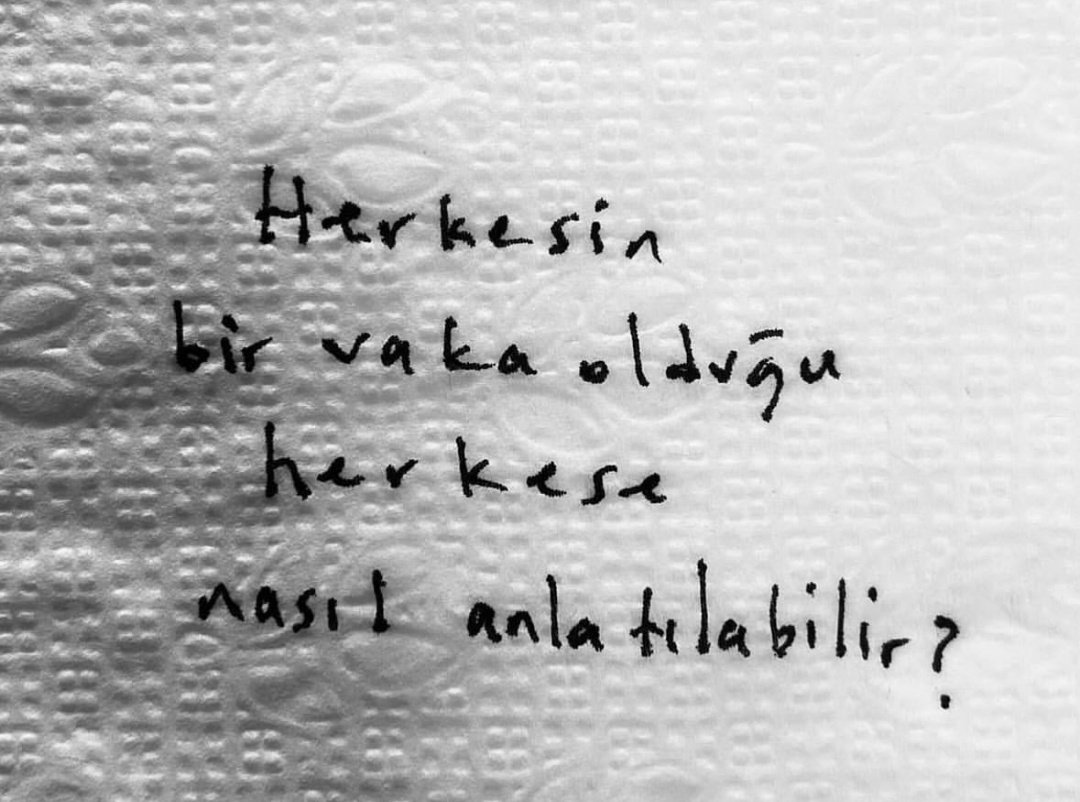 Herkesin
bir vaka olduğu
herkese
nasıl anlatılabilir?